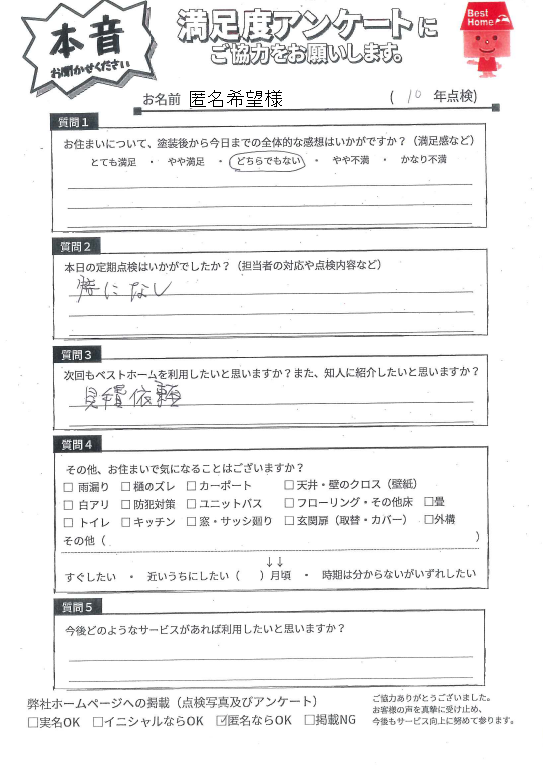 本音
お聞かせください
満足度アンケートに
ご協力をお願いします。
Best Home
お名前 匿名希望様 ( 10 年点検)
質問1
お住まいについて、塗装後から今日までの全体的な感想はいかがですか?(満足感など)
とても満足 ・ やや満足 ・ どちらでもない ・ やや不満 ・ かなり不満
質問2
本日の定期点検はいかがでしたか?(担当者の対応や点検内容など)
特になし
質問3
次回もベストホームを利用したいと思いますか?また、知人に紹介したいと思いますか?
見積依頼
質問4
その他、お住まいで気になることはございますか?
□ 雨漏り □ 樋のズレ □ カーポート □ 天井・壁のクロス(壁紙)
□ 白アリ □ 防犯対策 □ ユニットバス □ フローリング・その他床 □畳
□ トイレ □ キッチン □ 窓・サッシ廻り □ 玄関扉(取替・カバー) □外構
その他( )
↓↓
すぐしたい ・ 近いうちにしたい( )月頃 ・ 時期は分からないがいずれしたい
質問5
今後どのようなサービスがあれば利用したいと思いますか?
弊社ホームページへの掲載(点検写真及びアンケート)
□実名OK □イニシャルならOK ☑匿名ならOK □掲載NG
ご協力ありがとうございました。
お客様の声を真摯に受け止め、
今後もサービス向上に努めて参ります。